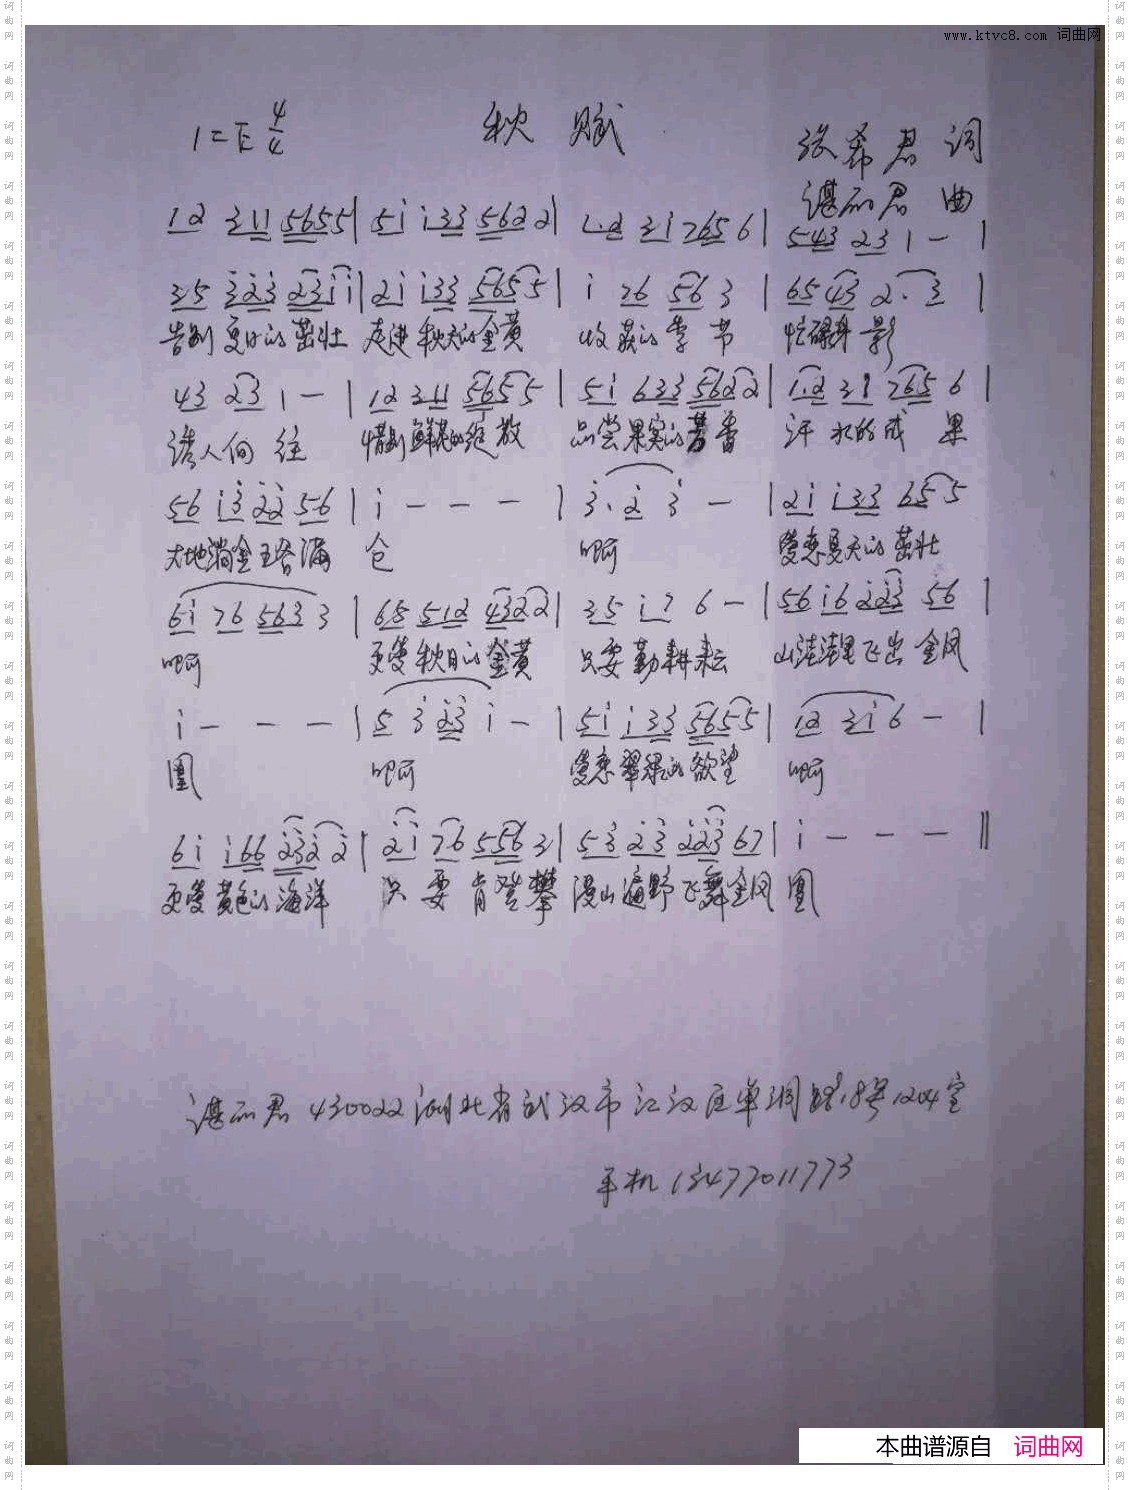 www.ktvc8.com 词曲网
1=E 4/4 秋 赋
张希君 词
谌丽君 曲
12 311 5655 | 5i i33 5622 | 1.2 3i 765 6 | 543 23 1 - |
35 323 23ii | 2i i33 5655 | i 76 56 3 | 6543 2. 3 |
告别夏日的茁壮 走进秋天的金黄 收获的季节 忙碌身影
43 23 1 - | 12 311 5655 | 5i 633 5622 | 1.2 31 765 6 |
诱人向往 惜别鲜花的绽放 品尝果实的芳香 汗水的成果
56 i3 22 56 | i - - - | 3. 2 3 - | 2i i33 655
大地淌金玉谷满 仓 啊 爱恋夏天的茁壮
6i 76 563 3 | 65 512 4322 | 35 i7 6 - | 56 i6 223 56 |
啊 更爱秋日的金黄 只要勤耕耘 山洼洼里飞出金凤
i - - - | 5 3 23 i - | 5i i33 5655 | 12 3i 6 - |
凰 啊 爱恋翠绿的欲望 啊
6i i66 2322 | 2i 76 556 3 | 53 23 i223 67 | i - - - ‖
更爱黄色的海洋 只要肯登攀 漫山遍野飞舞金凤 凰
谌丽君 430022 湖北省武汉市江汉区单洞路18号1204室
手机 13477011773
本曲谱源自 词曲网